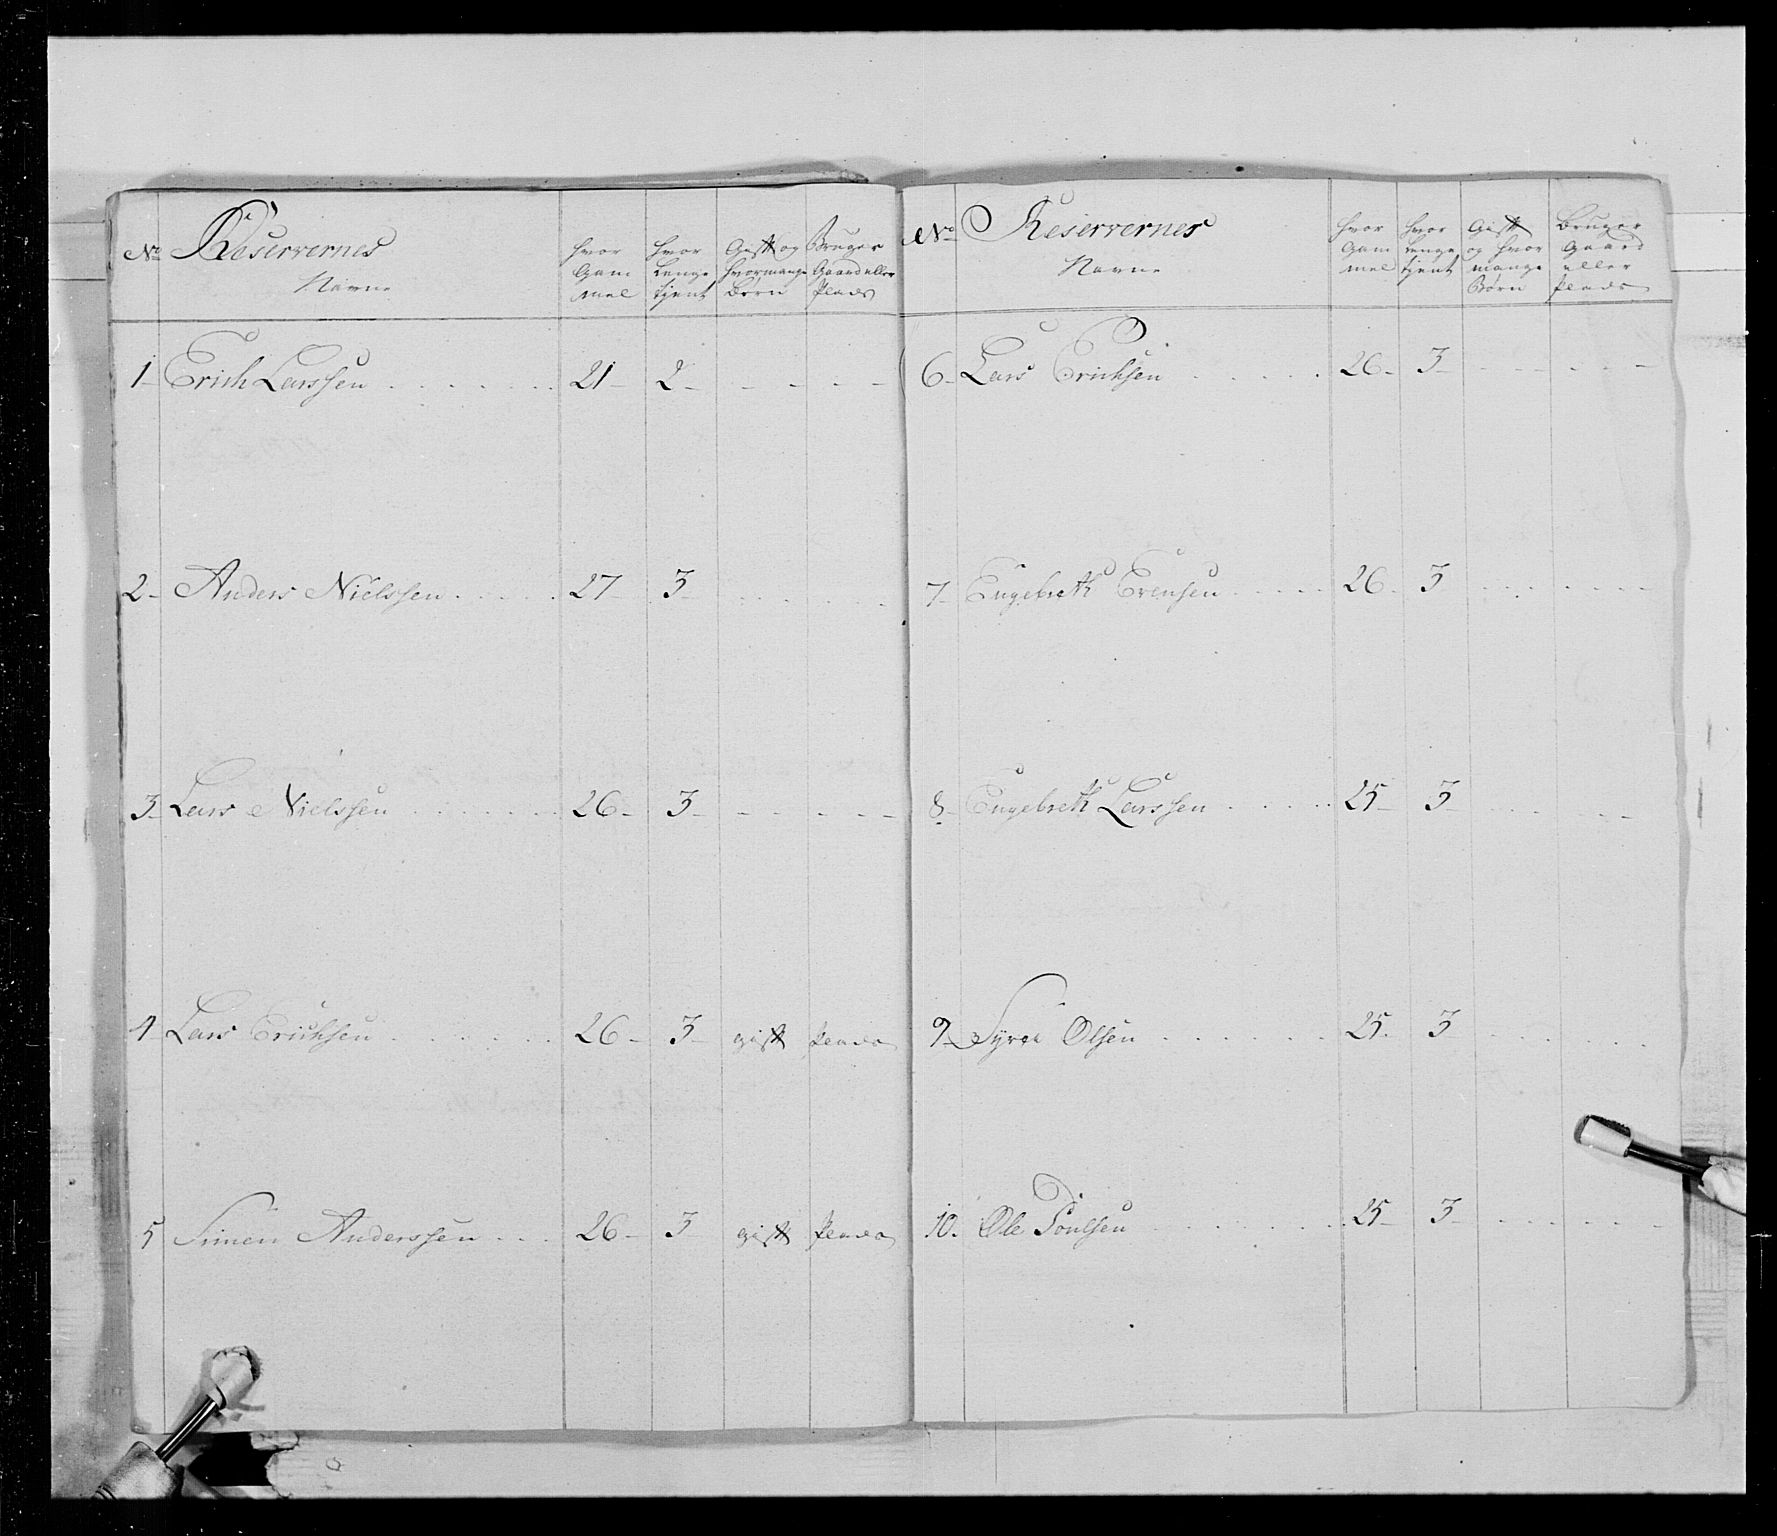 No Reservernes Navne hvor Gammel hvor Lenge tient Gift og hvormange Børn Bruger Gaard eller Plads
1 Erich Larssen 21 2
2 Anders Nielssen 27 3
3 Lars Nielssen 26 3
4 Lars Erichsen 26 3 gift Plads
5 Simen Anderssen 26 3 gift Plads
No Reservernes Navne hvor Gammel hvor Lenge tient Gift og hvor mange Børn Bruger Gaard eller Plads
6 Lars Erichsen 26 3
7 Engebreth Evensen 26 3
8 Engebreth Larssen 25 3
9 Syver Olsen 25 3
10. Ole Poulsen 25 3